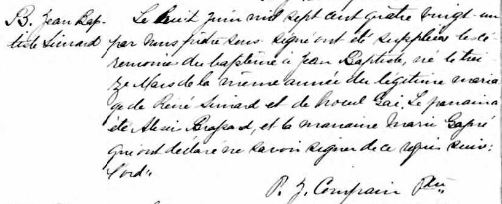 B. Jean Bap-
tiste Simard
Le huit juin mil sept cent quatre vingt un
par nous prêtre sous signé ont été suppliées les cé
rémonies du baptême à Jean Baptiste, né le trei
ze Mars de la même année du légitime maria
ge de René Simard et de Gai. Le parrain a
été Alexis Brassard, et la marraine Marie Gagné
qui ont declaré ne savoir signer de ce requis suiv.
l'ord.
P. J. Compain Ptre